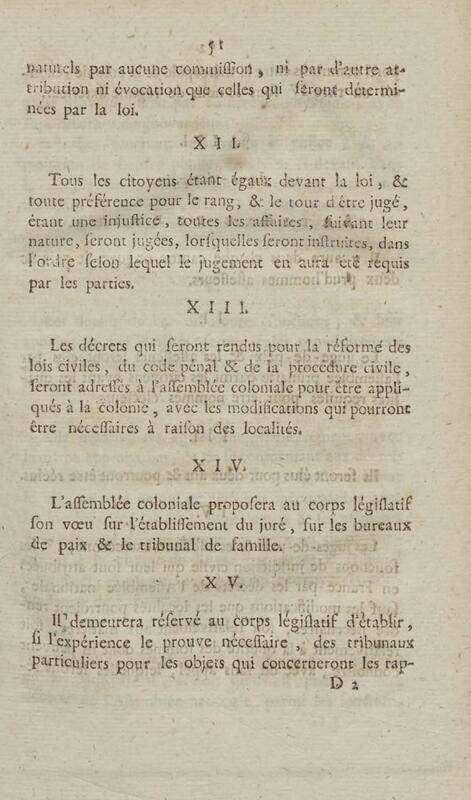 51
naturels par aucune commiſſion, ni par d'autre at-
tribution ni évocation que celles qui ſeront détermi-
nées par la loi.
XII.
Tous les citoyens étant égaux devant la loi, &
toute préférence pour le rang, & le tour d'être jugé,
étant une injuſtice, toutes les affaires, ſuivant leur
nature, ſeront jugées, lorſquelles ſeront inſtruites, dans
l'ordre ſelon lequel le jugement en aura été requis
par les parties.
XIII.
Les décrets qui ſeront rendus pour la réforme des
lois civiles, du code pénal & de la procédure civile,
ſeront adreſſés à l'aſſemblée coloniale pour être appli-
qués à la colonie, avec les modifications qui pourront
être néceſſaires à raiſon des localités.
XIV.
L'aſſemblée coloniale propoſera au corps législatif
ſon vœu ſur l'établiſſement du juré, ſur les bureaux
de paix & le tribunal de famille.
XV.
Il demeurera réſervé au corps législatif d'établir,
ſi l'expérience le prouve néceſſaire, des tribunaux
particuliers pour les objets qui concerneront les rap-
D 2